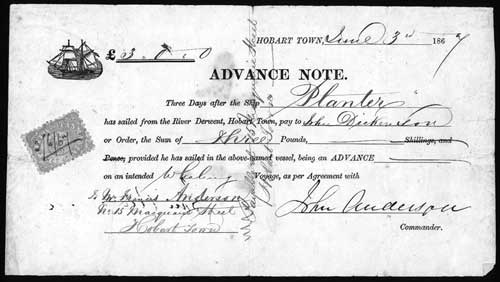 HOBART TOWN, June 3rd 1867
£3.0.0
ADVANCE NOTE.
Three Days after the Ship Planter
has sailed from the River Derwent, Hobart Town, pay to John Dickenson
or Order, the Sum of three Pounds, Shillings, and
Pence, provided he has sailed in the above-named vessel, being an ADVANCE
on an intended Whaling Voyage, as per Agreement with
To Mr Francis Anderson
No 15 Macquarie Street
Hobart Town
John Anderson
Commander.
3/6/67